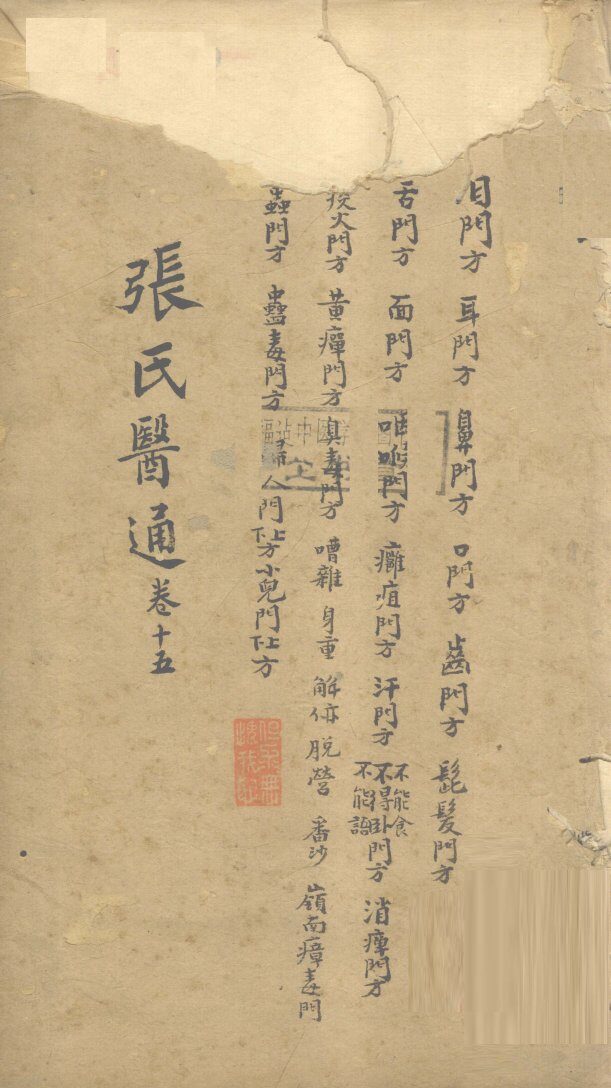 目門方 耳門方 鼻門方 口門方 齒門方 髭髮門方
舌門方 面門方 咽喉門方 癰疽門方 汗門方 不能食不得卧不能語門方 消癉門方
痰火門方 黃癉門方 臭毒門方 嘈雜 身重 解㑊 脫營 番沙 嶺南瘴毒門
蟲門方 蠱毒門方 婦人門上下方 小兒門上下方
張氏醫通 卷十五